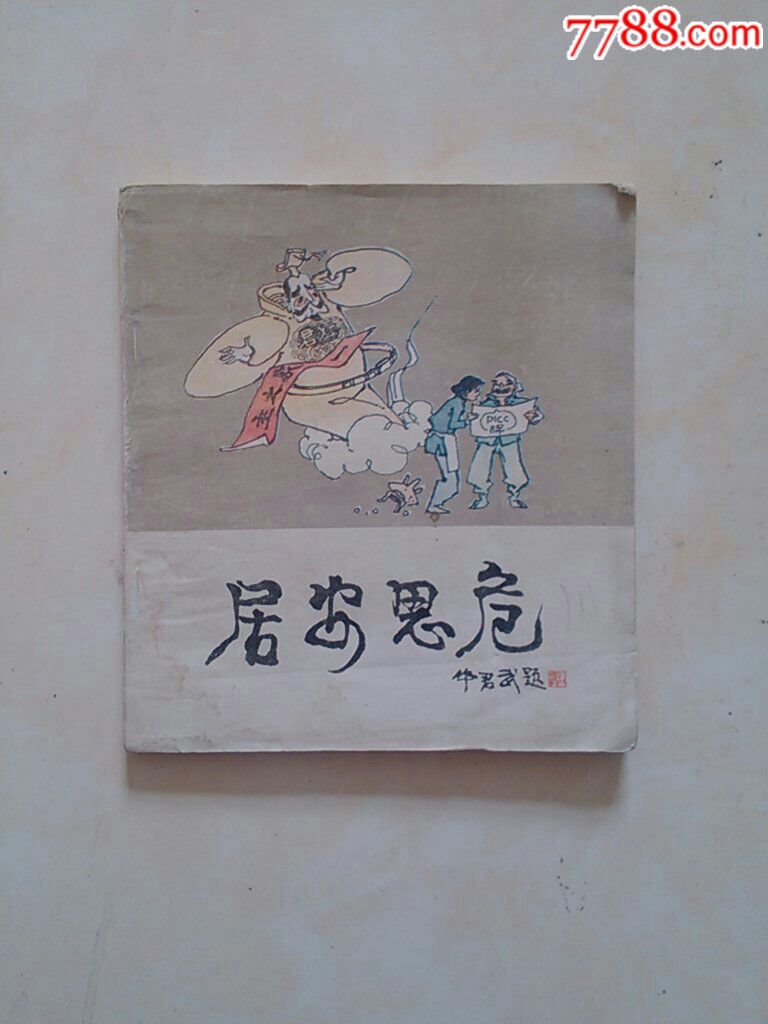 7788.com
DICC
牌
居安思危
华君武题